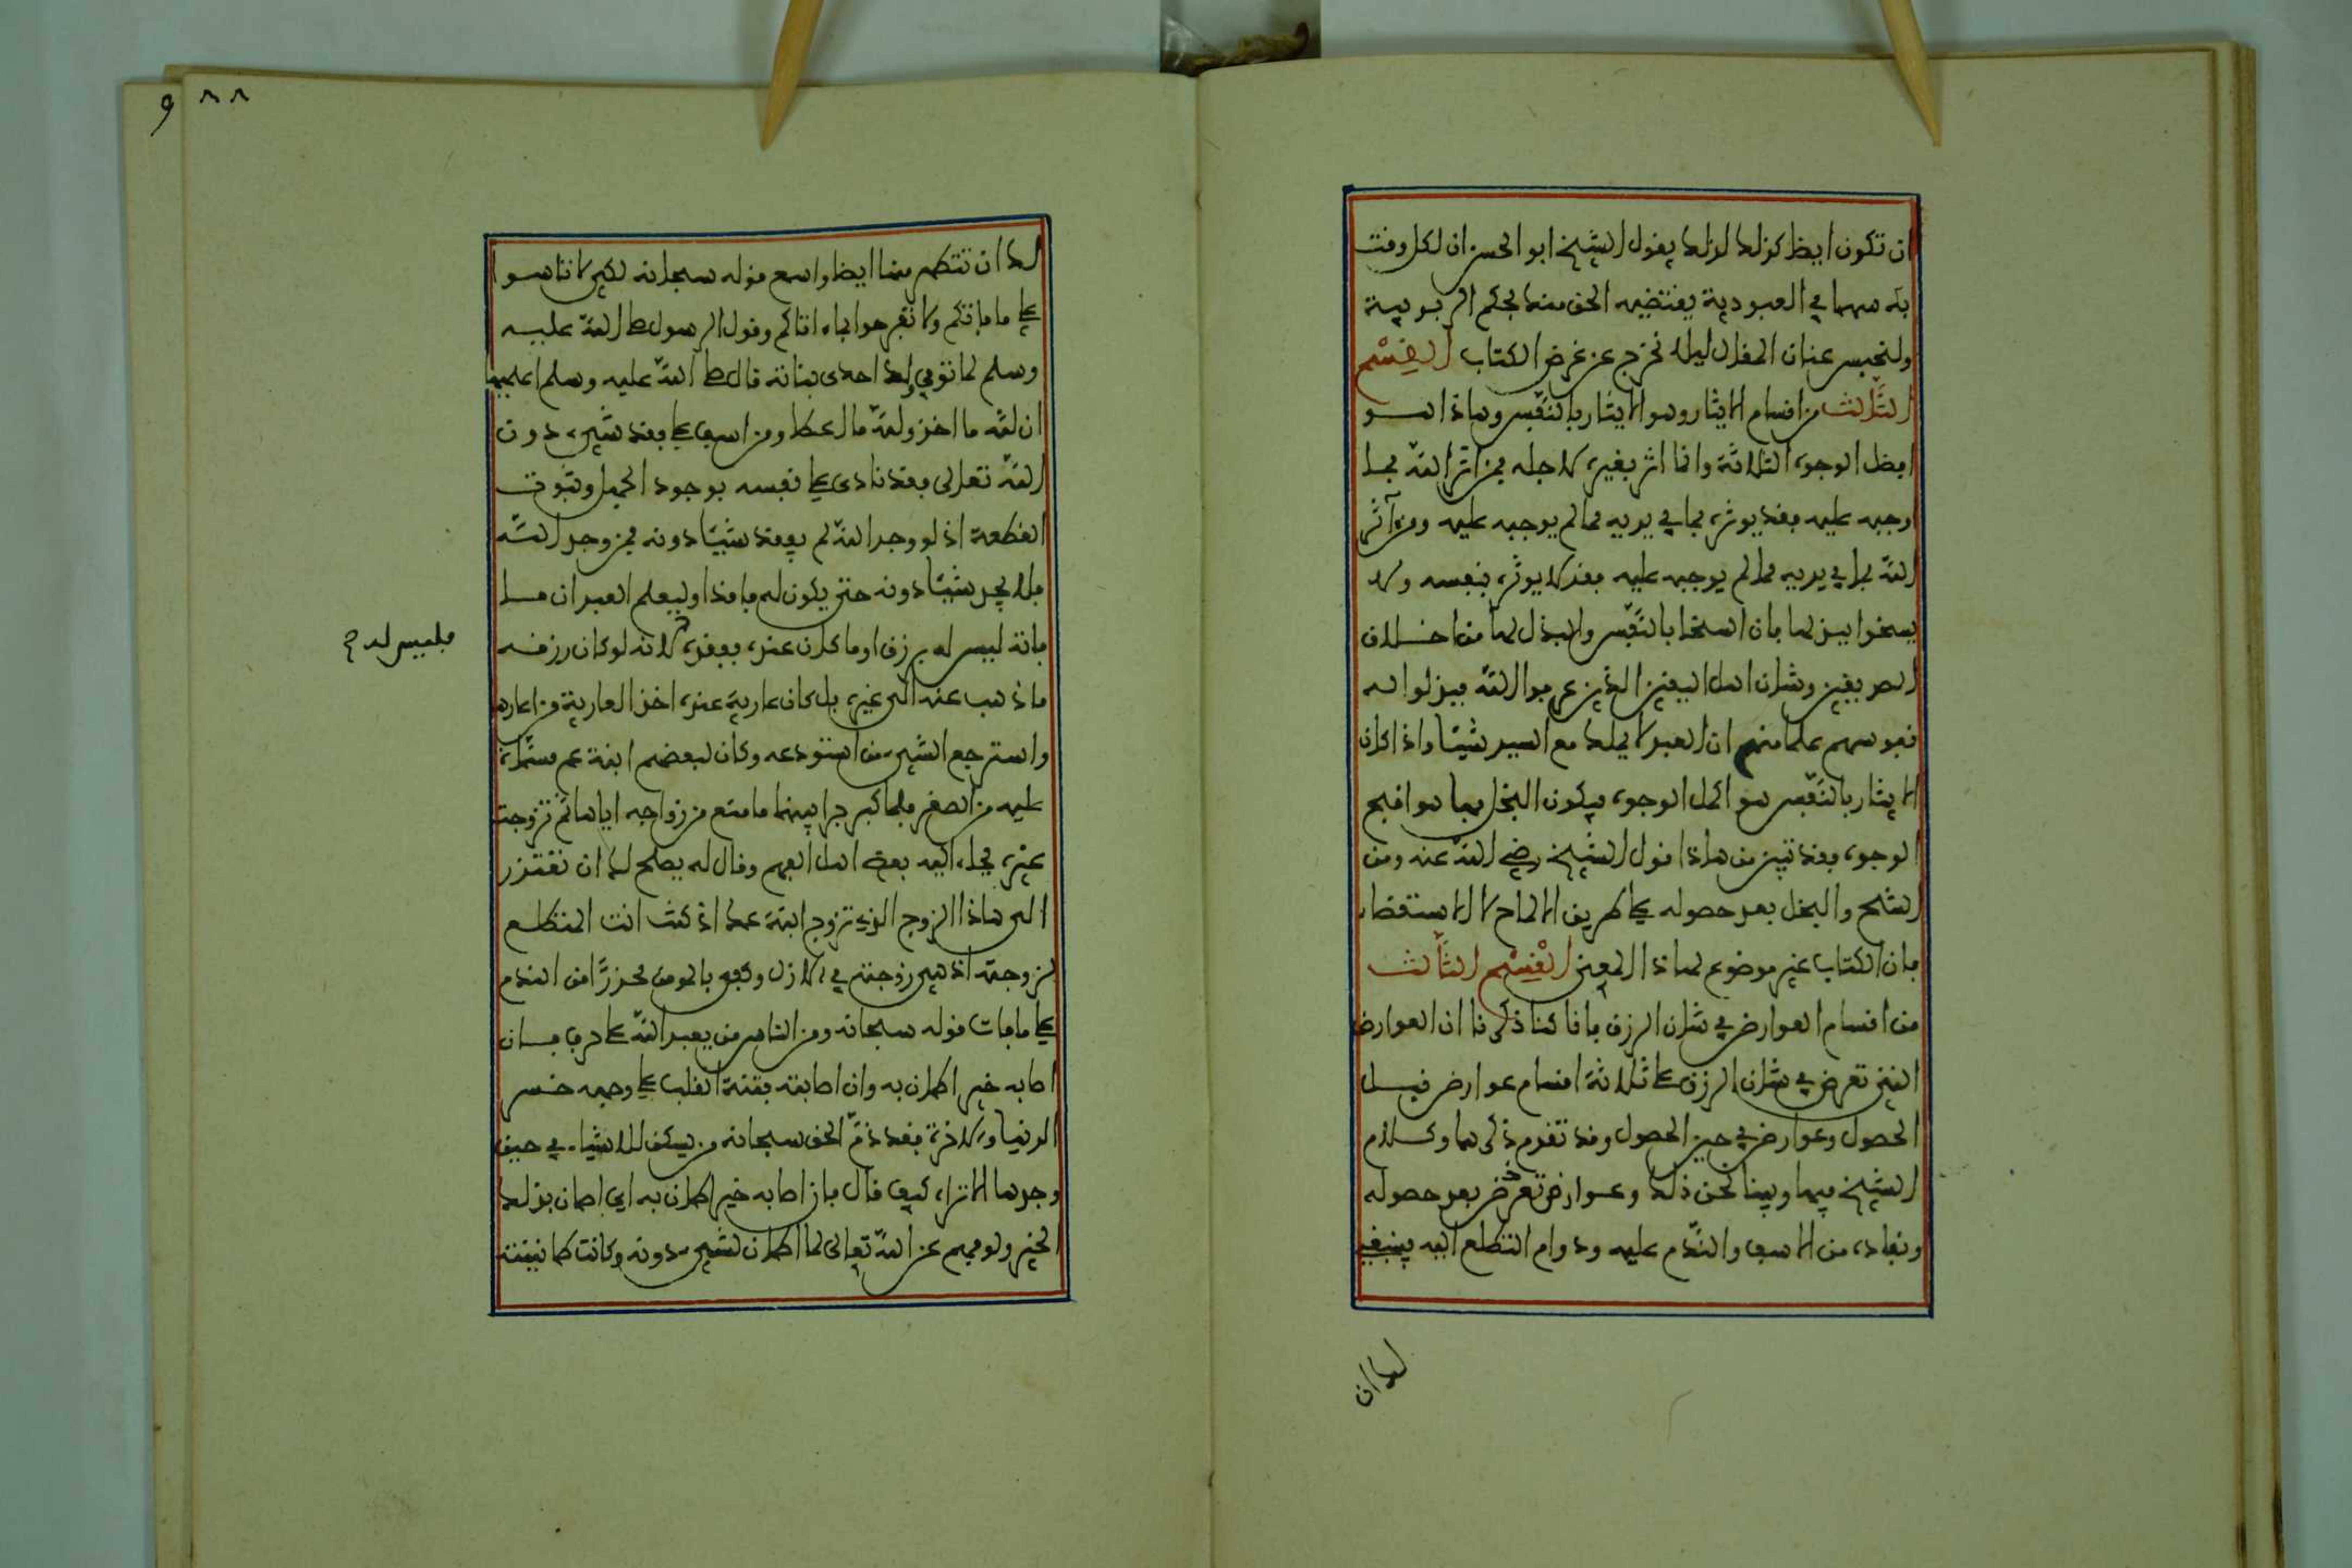 ان تكون ايضا كذلك لذلك يقول الشيخ ابو الحسن ان لكل وقت
به سهما في العبودية يقتضيه الحق منك بحكم الربوبية
ولنحبس عنان المقال ليلا نخرج عن غرض الكتاب القسم
الثالث من اقسام الايثار وهو الايثار بالنفس وهاذا هو
افضل الوجوه الثلاثة وانما اثر بغيره لاجله فمن اثر الله بما
اوجبه عليه فقد يوثره بما في يديه مما لم يوجبه عليه ومن آثر
الله بما في يديه مما لم يوجبه عليه فقد لا يوثره بنفسه ولا
يسخوا ببذلها فان السخا بالنفس والبذل لها من اخلاق
الصديقين وشان اهل اليقين الذين عرفوا الله فبذلوا له
نفوسهم علما منهم ان العبد لا يملك مع السيد شيئا واذا كان
الايثار بالنفس هو اكمل الوجوه فيكون البخل بها هو اقبح
الوجوه فقد تبين من هاذا قول الشيخ رضي الله عنه ومن
الشح والبخل بعد حصوله على طريق الالماح لا الاستقصاء
فان الكتاب غير موضوع لهاذا المعنى القسم الثالث
من اقسام العوارض في شان الرزق فانا كنا ذكرنا ان العوارض
التي تعرض في شان الرزق على ثلاثة اقسام عوارض قبل
الحصول وعوارض في حين الحصول وقد تقدم ذكرهما وكلام
الشيخ فيهما وبينا نحن ذلك وعوارض تعرض بعد حصوله
ونفاده من الاسف والندم عليه ودوام التطلع اليه فينبغي
لك ان
٨٨
لك ان تتطهر منها ايضا واسمع قوله سبحانه لكي لا تاسوا
على ما فاتكم ولا تفرحوا بما اتاكم وقول الرسول صلى الله عليه
وسلم لما توفي ولد احدى بناته قال صلى الله عليه وسلم اعلميها
ان لله ما اخذ ولله ما اعطى ومن اسف على فقد شيء دون
الله تعالى فقد نادى على نفسه بوجود الجهل وثبوت
القطعة اذ لو وجد الله لم يفقد شيئا دونه فمن وجد الله
فلا يجد شيئا دونه حتى يكون له فاقدا وليعلم العبد ان ما
فاته ليس له برزق او ما كان عنده ففقده لانه لو كان رزقه
فليس له
ما ذهب عنه الى غيره بل كان عارية عنده اخذ العارية من اعارها
واسترجع الشيء من استودعه وكان لبعضهم ابنة عم مسماة
عليه من الصغر فلما كبر جرا بينهما ما منع من زواجه اياها ثم تزوجت
غيره فجاء اليه بعض اهل الفهم وقال له يصلح لك ان تعتذر
الى هاذا الزوج الذي تزوج ابنة عمك اذ كنت انت المتطلع
لزوجته اذ هي زوجته في الازل وكفى بالمومن محرزا من الندم
على ما فات قوله سبحانه ومن الناس من يعبد الله على حرف فان
اصابه خير اطمان به وان اصابته فتنة انقلب على وجهه خسر
الدنيا والاخرة فقد ذم الحق سبحانه من يسكن للاشياء في حين
وجدها الا تراه كيف قال فان اصابه خير اطمان به اي اطمان بذلك
الخير ولو فهم عن الله تعالى لما اطمان لشيء دونه وكانت طمانينته